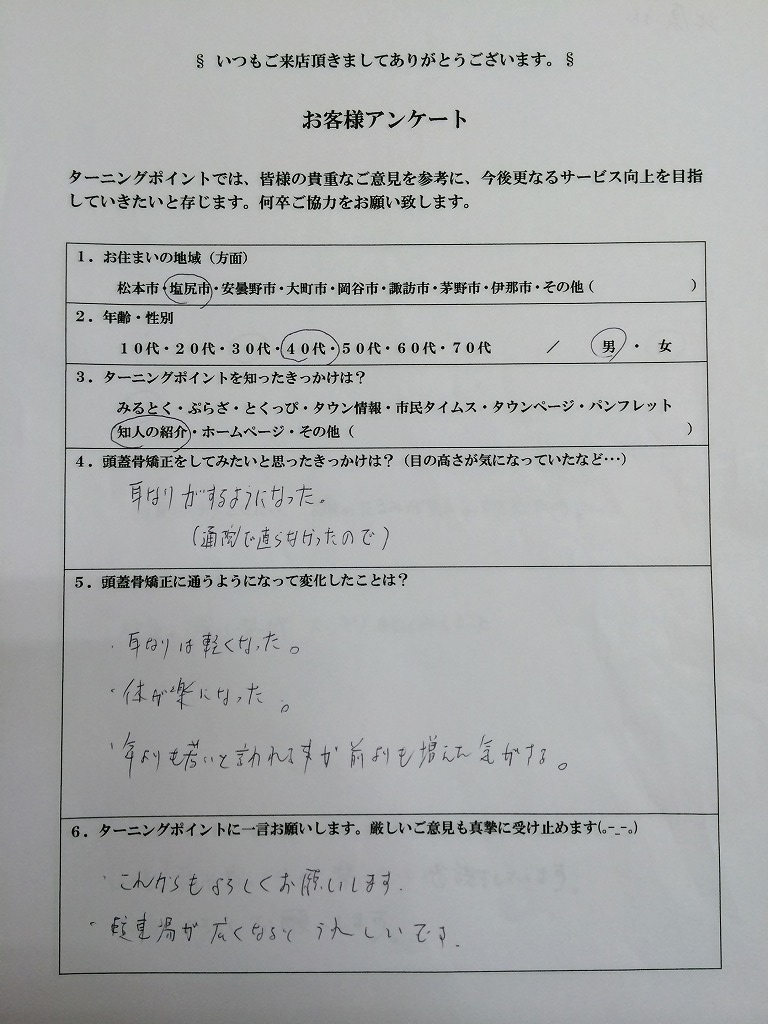 § いつもご来店頂きましてありがとうございます。§
お客様アンケート
ターニングポイントでは、皆様の貴重なご意見を参考に、今後更なるサービス向上を目指
していきたいと存じます。何卒ご協力をお願い致します。
1．お住まいの地域（方面）
松本市・塩尻市・安曇野市・大町市・岡谷市・諏訪市・茅野市・伊那市・その他（　　　　　　）
2．年齢・性別
１０代・２０代・３０代・４０代・５０代・６０代・７０代　　／　　男・女
3．ターニングポイントを知ったきっかけは？
みるとく・ぷらざ・とくっぴ・タウン情報・市民タイムス・タウンページ・パンフレット
知人の紹介・ホームページ・その他（　　　　　　）
4．頭蓋骨矯正をしてみたいと思ったきっかけは？（目の高さが気になっていたなど･･･）
耳なりがするようになった。
（通院で直らなかったので）
5．頭蓋骨矯正に通うようになって変化したことは？
・耳なりは軽くなった。
・体が楽になった。
・年よりも若いと言われる事が前よりも増えた気がする。
6．ターニングポイントに一言お願いします。厳しいご意見も真摯に受け止めます(｡-_-｡)
・これからもよろしくお願いします.
・駐車場が広くなるとうれしいです.